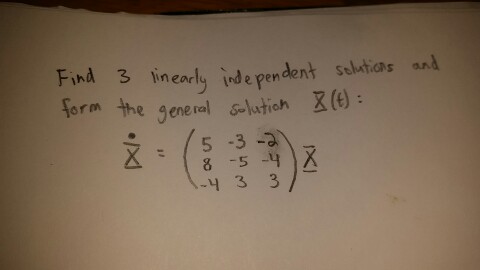 Find 3 linearly independent solutions and
form the general solution X(t) :
Ẋ = ( 5 -3 -2
8 -5 -4
-4 3 3 ) X